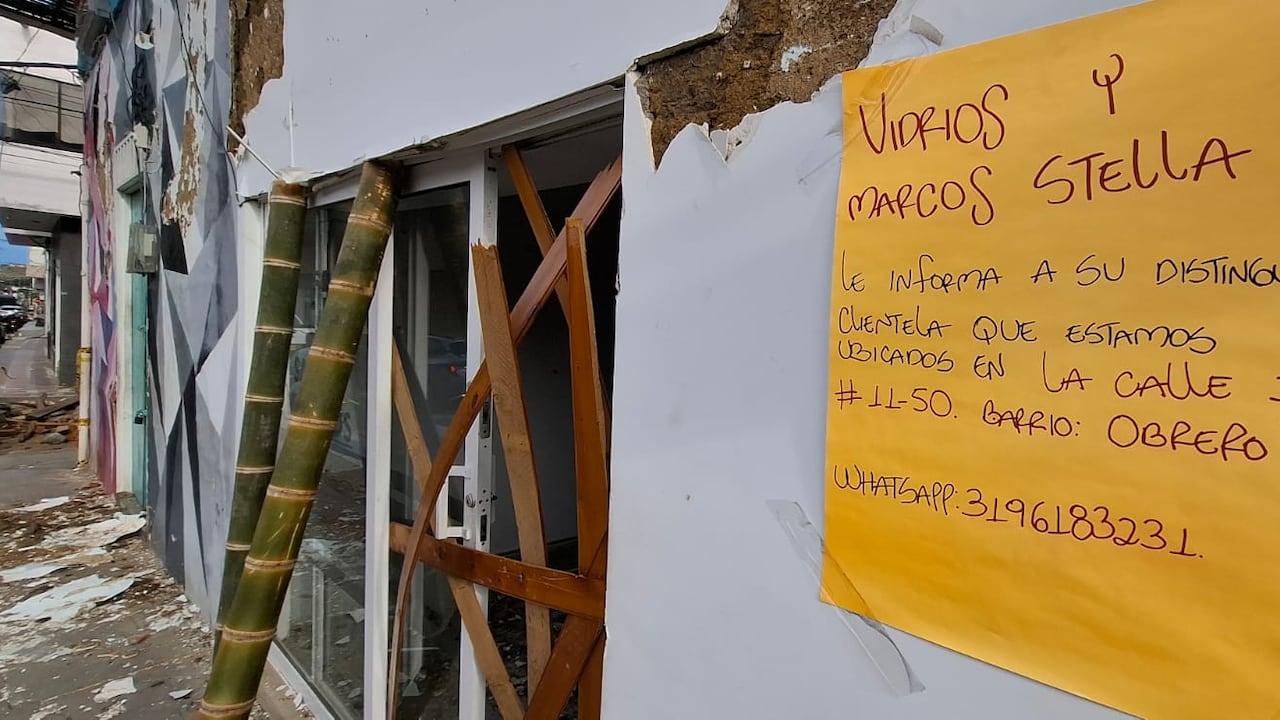 VIDRIOS Y
MARCOS STELLA
LE INFORMA A SU DISTINGU
CLIENTELA QUE ESTAMOS
UBICADOS EN LA CALLE
# 11-50. BARRIO: OBRERO
WHATSAPP: 3196183231.